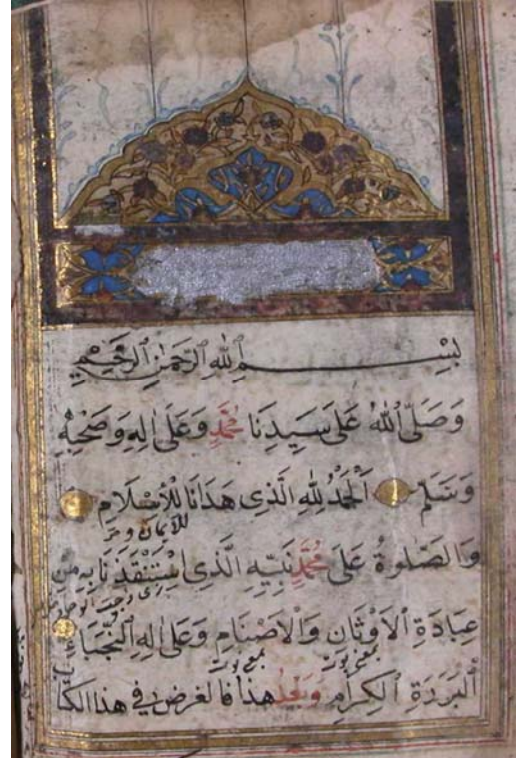 بِسْمِ ٱللهِ ٱلرَّحْمٰنِ ٱلرَّحِيمِ
وَصَلَّى ٱللهُ عَلَى سَيِّدِنَا مُحَمَّدٍ وَعَلَى اٰلِهِ وَصَحْبِهِ
وَسَلَّمَ اَلْحَمْدُ لِلّٰهِ الَّذِى هَدَانَا لِلْاِسْلَامِ
للايمان
وَالصَّلٰوةُ عَلَى مُحَمَّدٍ نَبِيِّهِ الَّذِى اسْتَنْقَذَنَا بِهِ مِنْ
عِبَادَةِ الْاَوْثَانِ وَالْاَصْنَامِ وَعَلَى اٰلِهِ النُّجَبَاءِ
اَلْبَرَرَةِ الْكِرَامِ وَبَعْدُ هٰذَا فَالْغَرَضُ فِى هٰذَا الْكِتَا